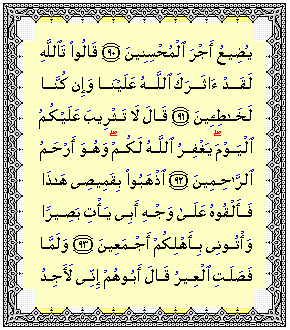 يُضِيعُ أَجْرَ ٱلْمُحْسِنِينَ ۝٩٠ قَالُوا۟ تَٱللَّهِ
لَقَدْ ءَاثَرَكَ ٱللَّهُ عَلَيْنَا وَإِن كُنَّا
لَخَـٰطِـِٔينَ ۝٩١ قَالَ لَا تَثْرِيبَ عَلَيْكُمُ
ٱلْيَوْمَ ۖ يَغْفِرُ ٱللَّهُ لَكُمْ ۖ وَهُوَ أَرْحَمُ
ٱلرَّٰحِمِينَ ۝٩٢ ٱذْهَبُوا۟ بِقَمِيصِى هَـٰذَا
فَأَلْقُوهُ عَلَىٰ وَجْهِ أَبِى يَأْتِ بَصِيرًا
وَأْتُونِى بِأَهْلِكُمْ أَجْمَعِينَ ۝٩٣ وَلَمَّا
فَصَلَتِ ٱلْعِيرُ قَالَ أَبُوهُمْ إِنِّى لَأَجِدُ